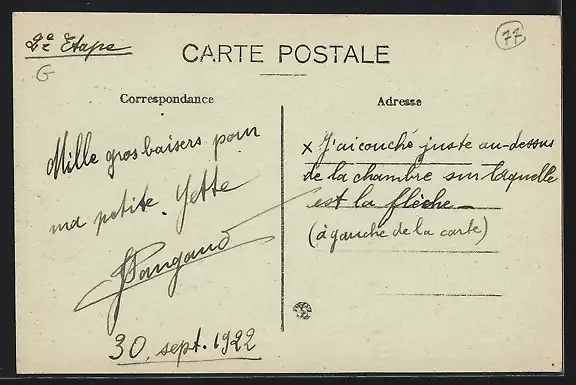 2e Etape
G
77
CARTE POSTALE
Correspondance
Adresse
Mille gros baisers pour
ma petite Yette
30. sept. 1922
x J'ai couché juste au-dessus
de la chambre sur laquelle
est la flèche —
(à gauche de la carte)